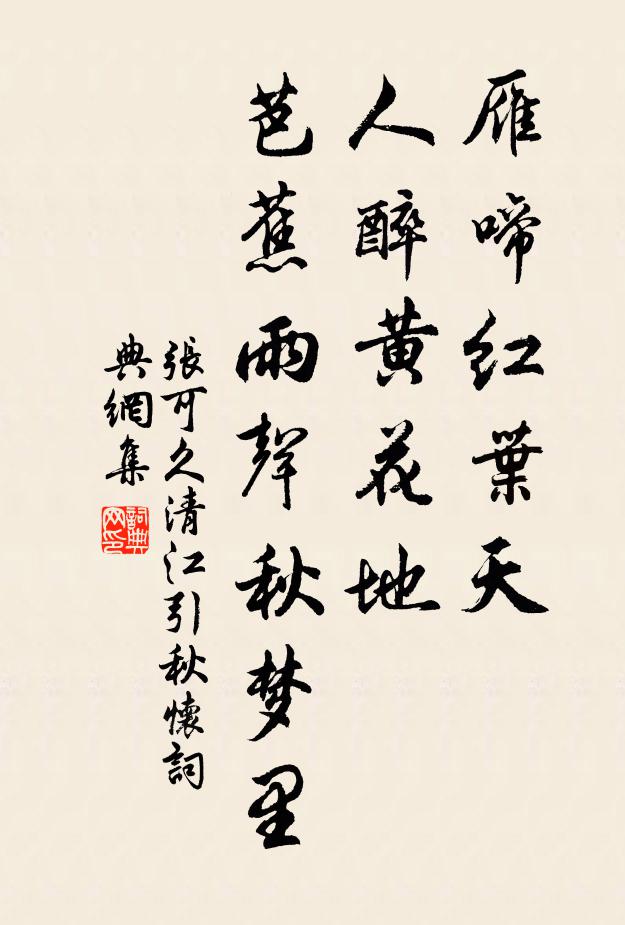 雁啼红葉天
人醉黄花地
芭蕉雨聲秋梦里
張可久清江引秋懷詞
典網集
詞典网印